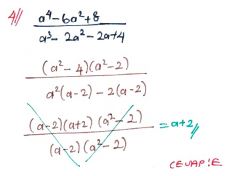 4// a⁴-6a²+8
a³-2a²-2a+4
(a²-4)(a²-2)
a²(a-2)-2(a-2)
(a-2)(a+2)(a²-2) = a+2//
(a-2)(a²-2)
CEVAP:E